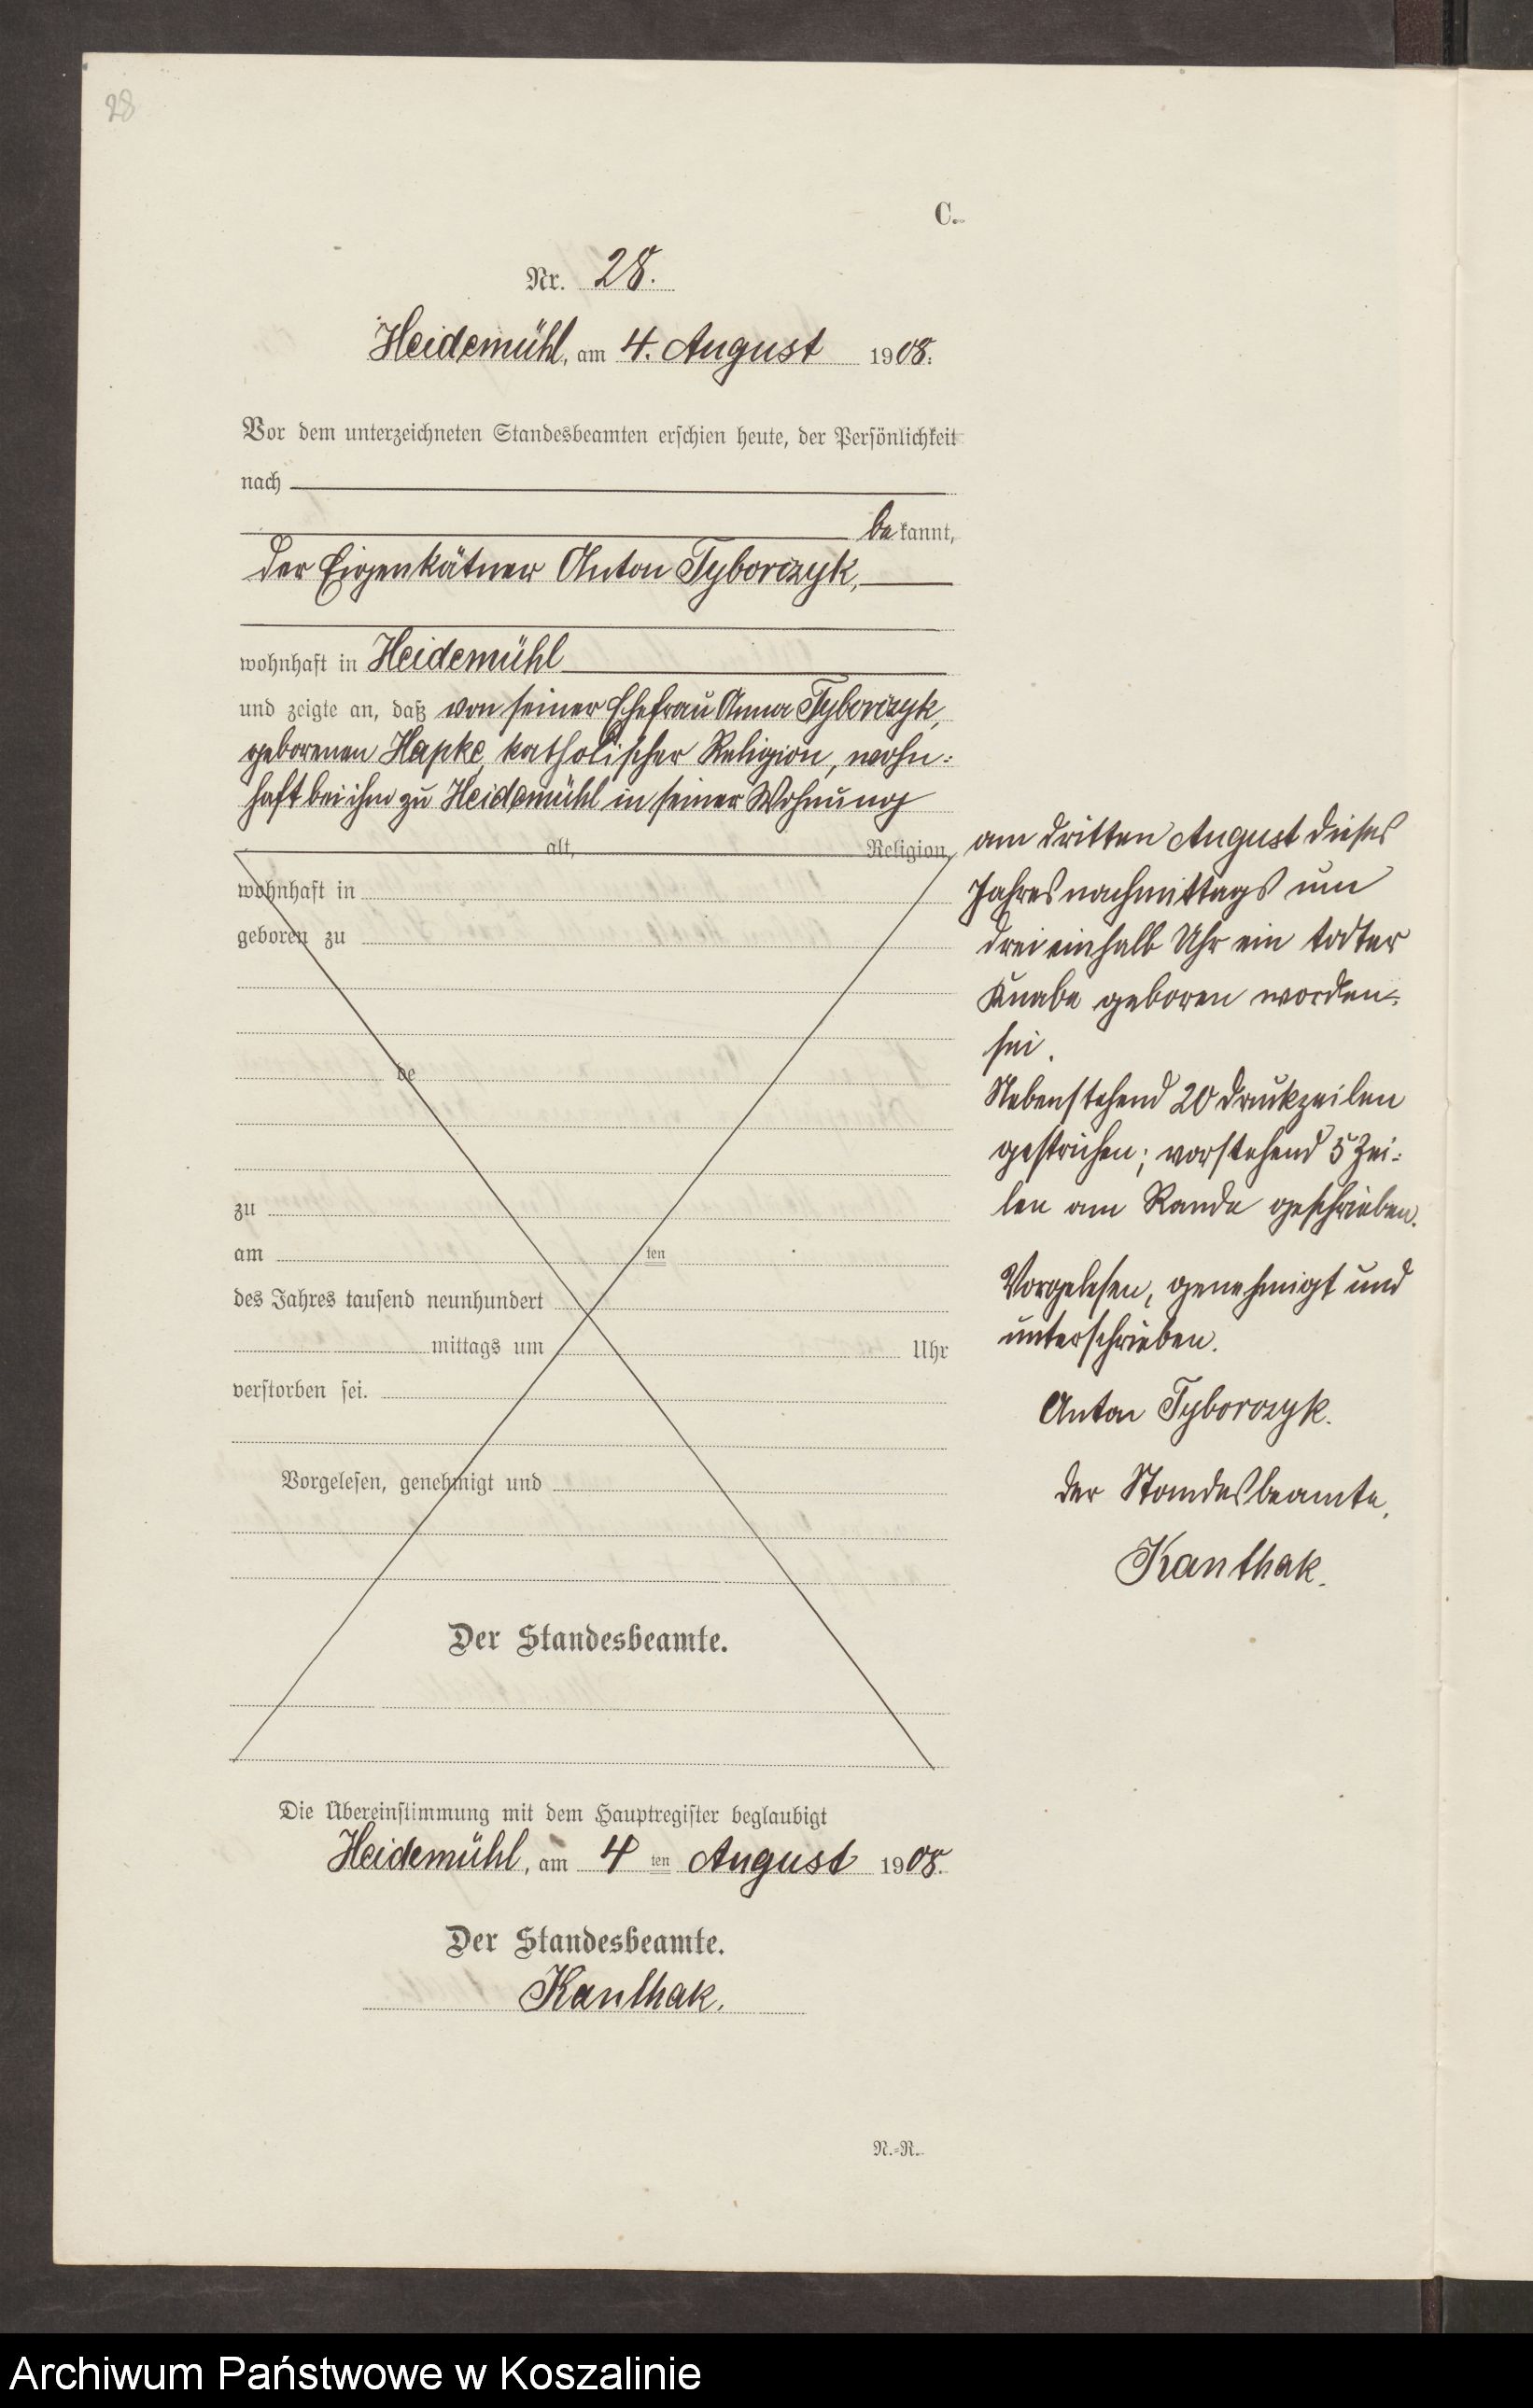 28
C.
Nr. 28.
Heidemühl, am 4. August 1908.
Vor dem unterzeichneten Standesbeamten erschien heute, der Persönlichkeit
nach
be kannt,
der Eigenkätner Anton Tyborczyk,
wohnhaft in Heidemühl
und zeigte an, daß von seiner Ehefrau Anna Tyborczyk,
geborenen Hapke, katholischer Religion, wohn-
haft bei ihm zu Heidemühl in seiner Wohnung
alt, Religion,
wohnhaft in
geboren zu
be
zu
am ten
des Jahres tausend neunhundert
mittags um Uhr
verstorben sei.
Vorgelesen, genehmigt und
Der Standesbeamte.
am dritten August dieses
Jahres nachmittags um
drei einhalb Uhr ein todter
Knabe geboren worden
sei.
Nebenstehend 20 Druckzeilen
gestrichen; vorstehend 5 Zei-
len am Rande geschrieben.
Vorgelesen, genehmigt und
unterschrieben.
Anton Tyborczyk.
Der Standesbeamte.
Kanthak.
Die Übereinstimmung mit dem Hauptregister beglaubigt
Heidemühl, am 4 ten August 1908.
Der Standesbeamte.
Kanthak.
N.-R.
Archiwum Państwowe w Koszalinie